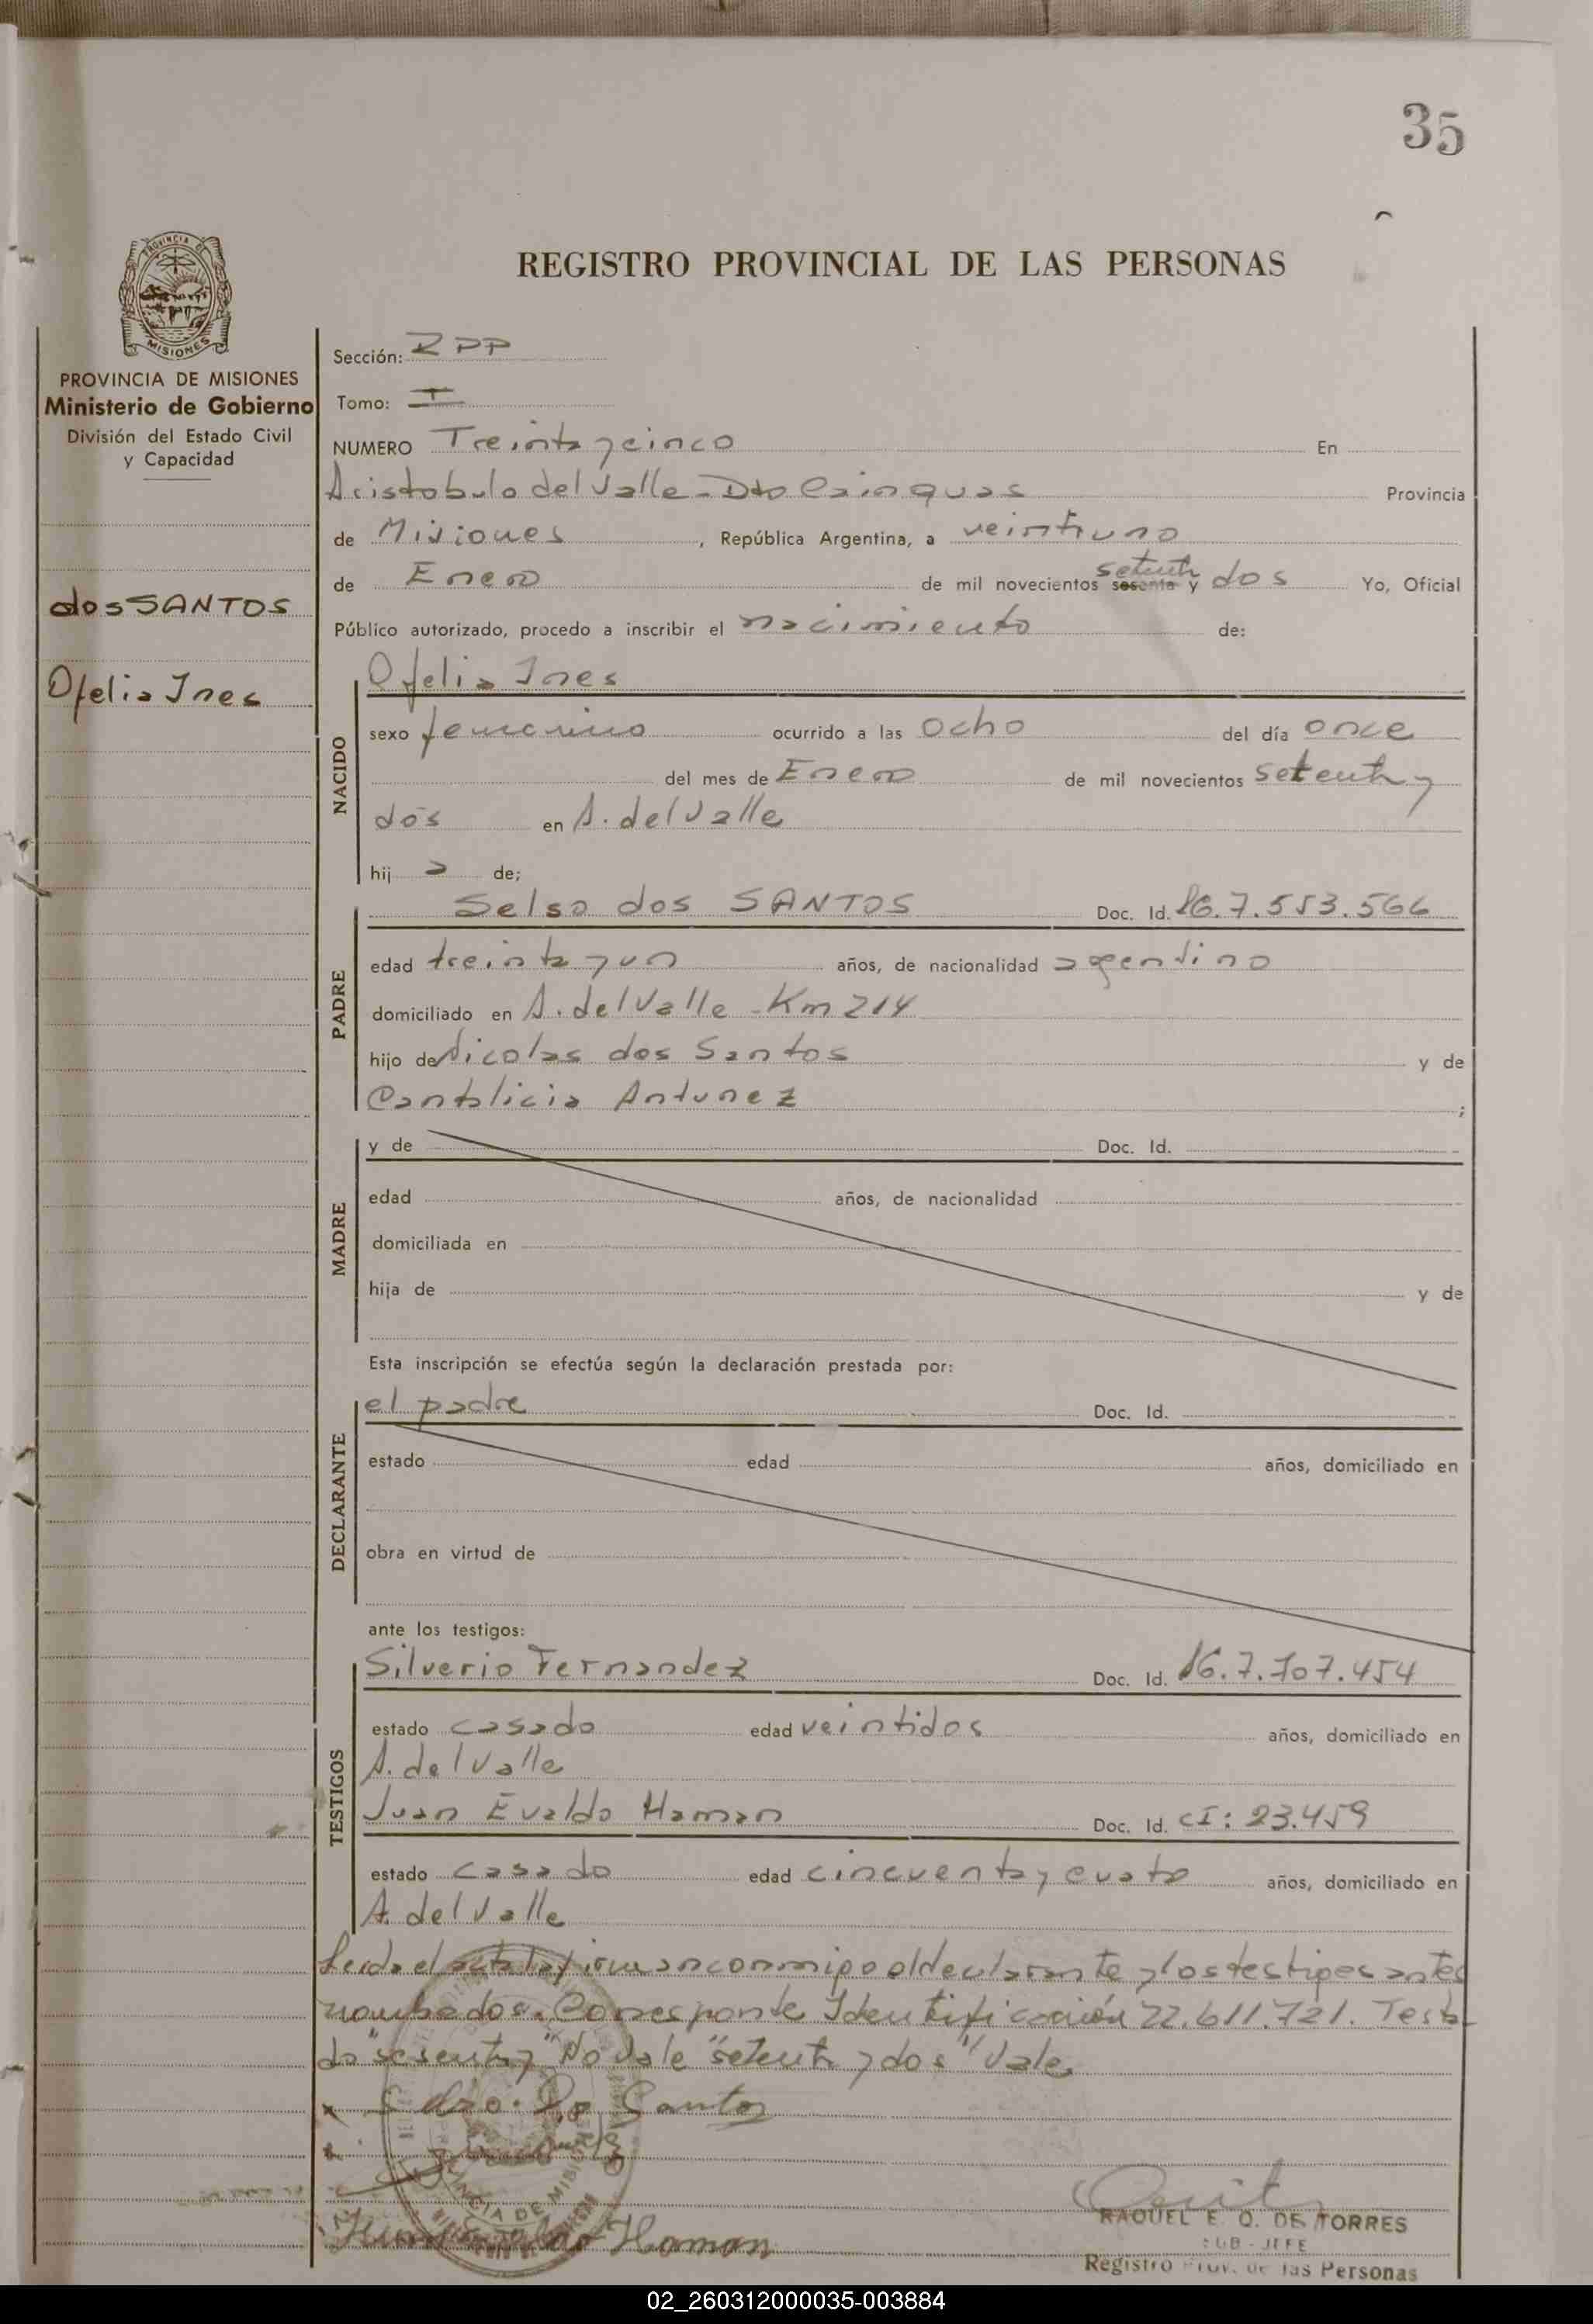 35
REGISTRO PROVINCIAL DE LAS PERSONAS
PROVINCIA DE MISIONES
Ministerio de Gobierno
División del Estado Civil
y Capacidad
dos SANTOS
Ofelia Ines
Sección: RPP
Tomo: I
NUMERO Treinta y cinco En
Aristobulo del Valle - Dto Cainguas Provincia
de Misiones, República Argentina, a veintiuno
de Enero de mil novecientos sesenta y setenta dos Yo, Oficial
Público autorizado, procedo a inscribir el nacimiento de:
NACIDO
Ofelia Ines
sexo femenino ocurrido a las ocho del día once
del mes de Enero de mil novecientos setenta y
dos en A. del Valle
hij a de;
PADRE
Selso dos SANTOS Doc. Id. 7.553.566
edad treinta y un años, de nacionalidad agentino
domiciliado en A. del Valle - Km 214
hijo de Nicolas dos Santos y de
Cantalicia Antunez ;
MADRE
y de Doc. Id.
edad años, de nacionalidad
domiciliada en
hija de y de
Esta inscripción se efectúa según la declaración prestada por:
DECLARANTE
el padre Doc. Id.
estado edad años, domiciliado en
obra en virtud de
ante los testigos:
TESTIGOS
Silverio Fernandez Doc. Id. 7.707.454
estado casado edad veintidos años, domiciliado en
A. del Valle
Juan Evaldo Haman Doc. Id. CI: 23.459
estado casado edad cincuenta y cuato años, domiciliado en
A. del Valle
Leida el acta la firman conmigo el declarante y los testigos antes
nombados. Corresponde Identificación 22.611.721. Testa
do "sesenta y" No Vale "setenta y dos" Vale.
Dos Santos
Haman
RAQUEL E. O. DE TORRES
SUB - JEFE
Registro Prov. de las Personas
02_260312000035-003884